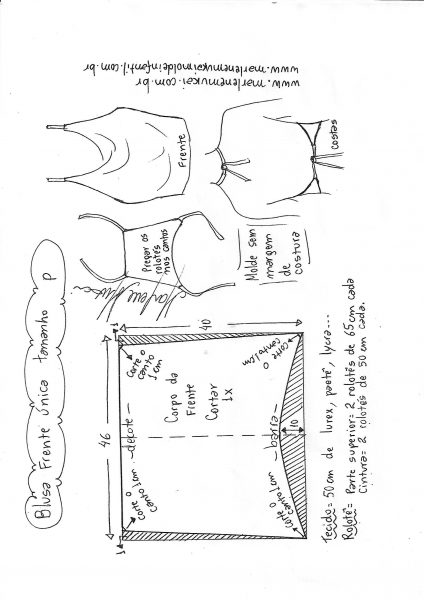 Blusa Frente única tamanho P
46
1
1
decote
corte o
canto 1cm
corte o
canto
1cm
Corpo da
Frente
Cortar
1x
40
barra
10
corte o
canto 1cm
corte o
canto 1cm
Pregar os
rolotês
nos cantos
Molde sem
margem
de
costura
Frente
costas
www.marlenemukai.com.br
www.marlenemukaimoldeinfantil.com.br
Tecido = 50cm de lurex, paetê, lycra...
Rolotê = Parte superior = 2 rolotês de 65 cm cada
Cintura = 2 rolotês de 50 cm cada.